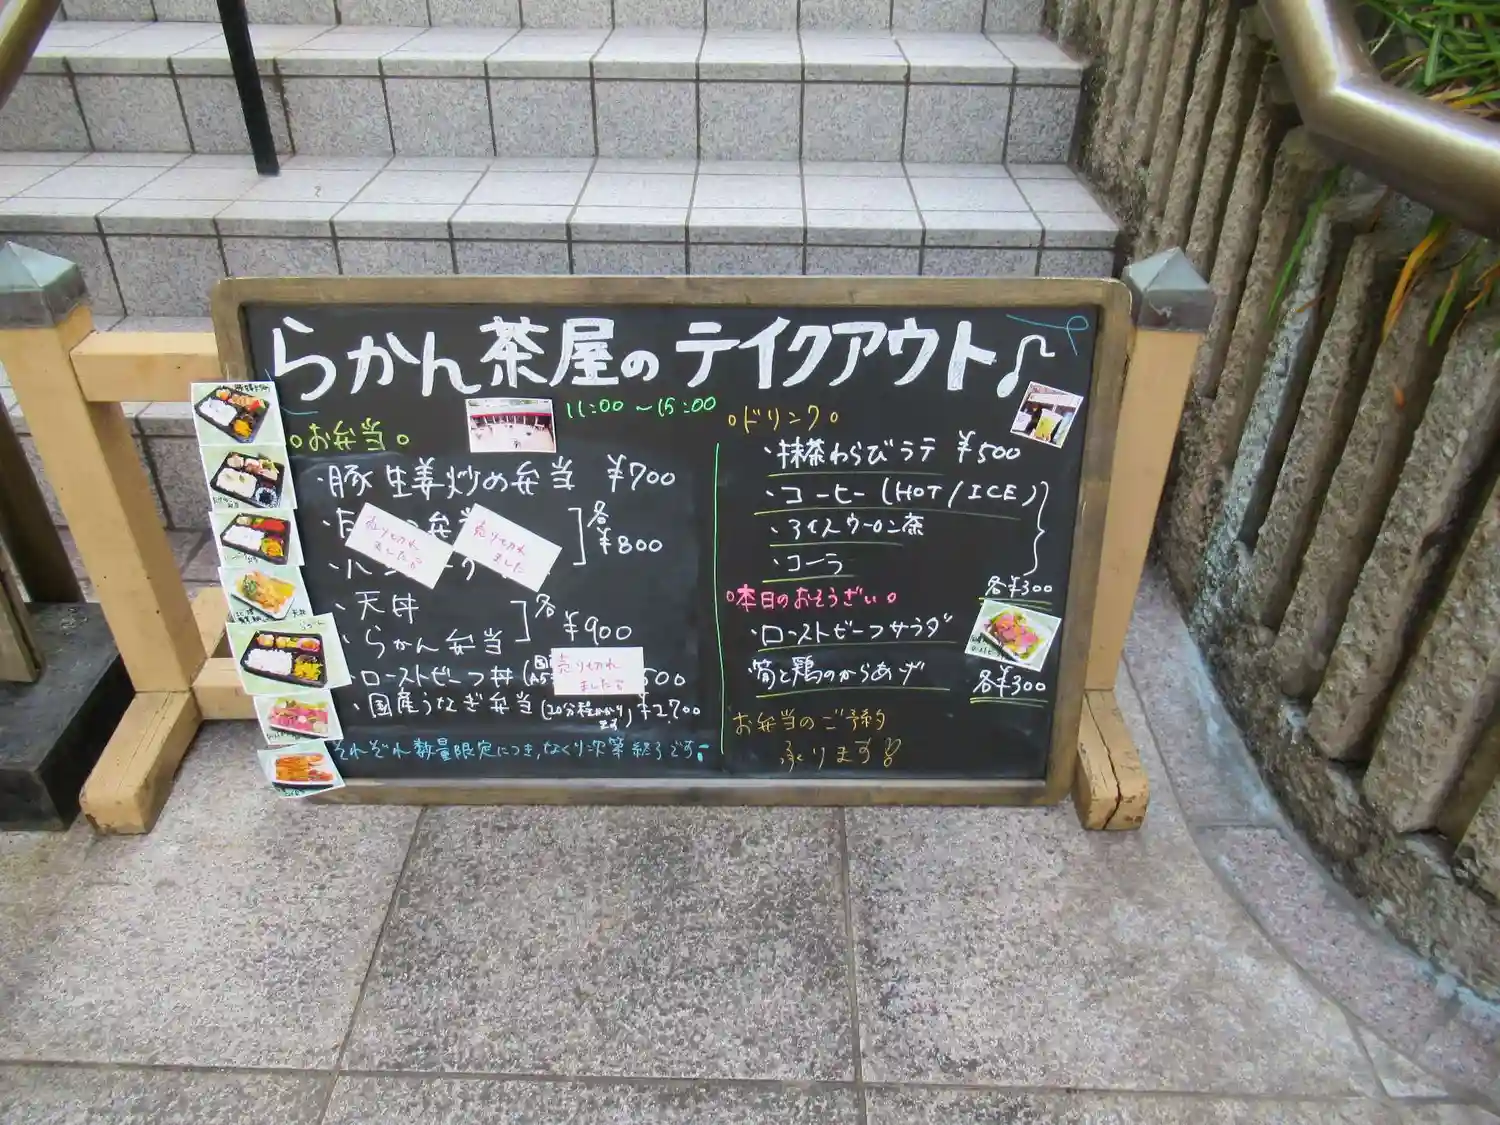 らかん茶屋のテイクアウト♪
11:00～15:00
○お弁当○
・豚生姜炒め弁当 ¥700
弁当
各¥800
売り切れました
売り切れました
・天丼
・らかん弁当
各¥900
・ローストビーフ丼
売り切れました
・国産うなぎ弁当(20分程かかります) ¥2700
それぞれ数量限定につき、なくり次第終了です
○ドリンク○
・抹茶わらびラテ ¥500
・コーヒー(HOT/ICE)
・アイスウーロン茶
・コーラ
各¥300
○本日のおそうざい○
・ローストビーフサラダ
・筍と鶏のからあげ
各¥300
お弁当のご予約
承ります!